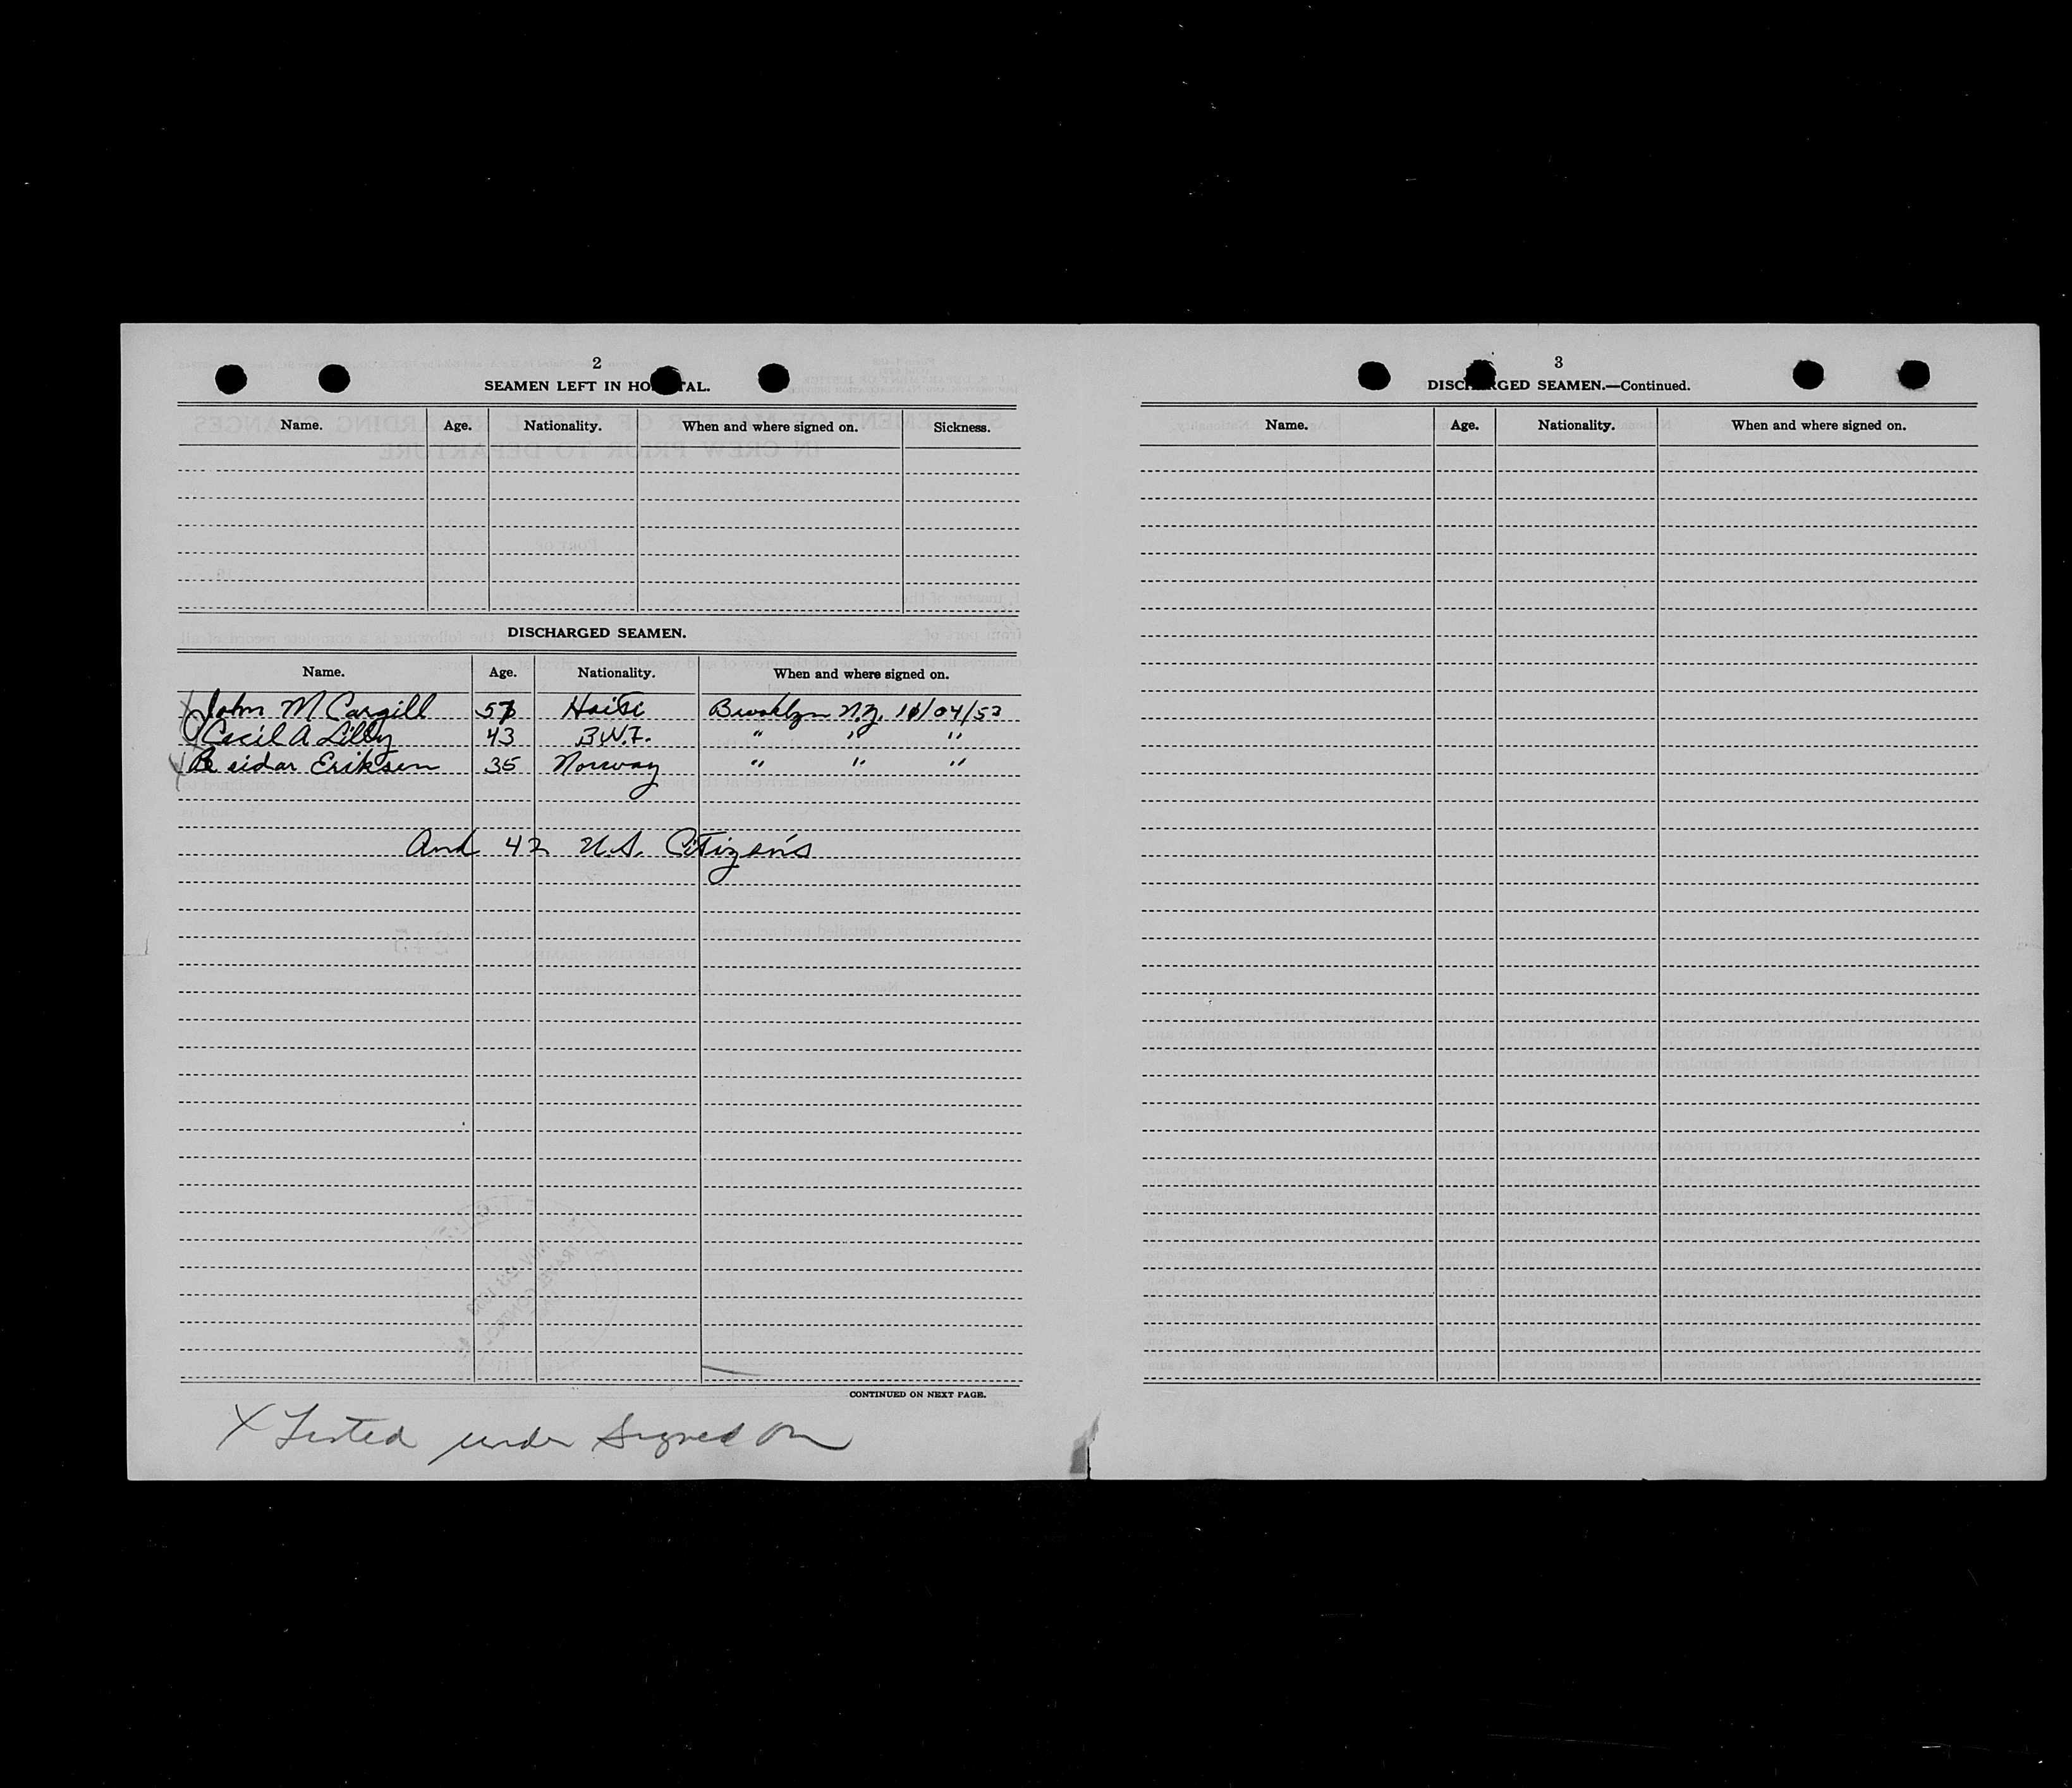 2
SEAMEN LEFT IN HOSPITAL.
Name. Age. Nationality. When and where signed on. Sickness.
DISCHARGED SEAMEN.
Name. Age. Nationality. When and where signed on.
X John M Cargill Haiti Brooklyn N.Y.
Cecil A Lilly 43 B.W.I. " " "
X Reidar Eriksen 35 Norway " " "
And 42 U.S. Citizen's
CONTINUED ON NEXT PAGE.
X Listed under Signed On
3
DISCHARGED SEAMEN.—Continued.
Name. Age. Nationality. When and where signed on.